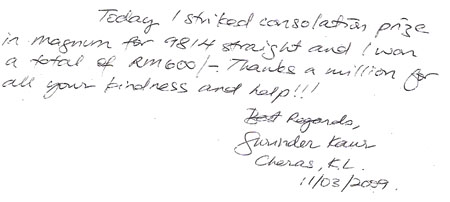 Today I striked consolation prize
in magnum for 9814 straight and I won
a total of RM600/-. Thanks a million for
all your kindness and help!!!
Best Regards,
Surinder Kaur
Cheras, K.L.
11/03/2009.